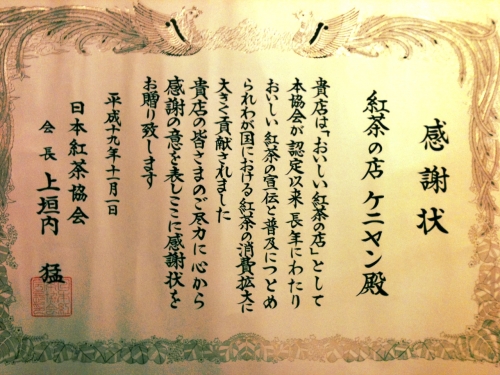 感謝状
紅茶の店 ケニヤン殿
貴店は、「おいしい紅茶の店」として
本協会が認定以来 長年にわたり
おいしい紅茶の宣伝と普及につとめ
られわが国における紅茶の消費拡大に
大きく貢献されました
貴店の皆さまのご尽力に心から
感謝の意を表しここに感謝状を
お贈り致します
平成十九年十一月一日
日本紅茶協会
会長 上垣内 猛